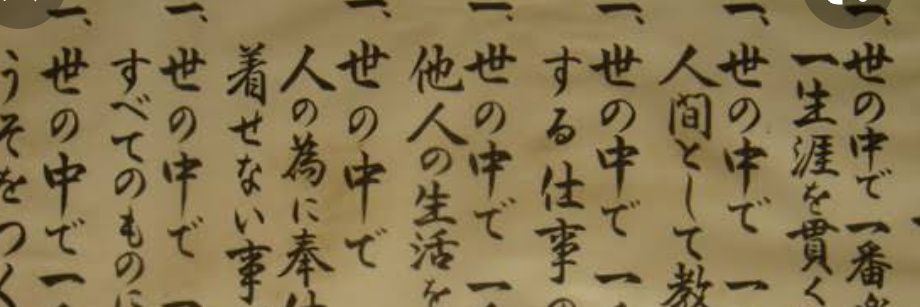 一、世の中で一番
一生涯を貫く
一、世の中で一
人間として教
一、世の中で一
する仕事の
一、世の中で一
他人の生活を
一、世の中で
人の為に奉仕
着せない事
一、世の中で
すべてのものに
一、世の中で一
うそをつく